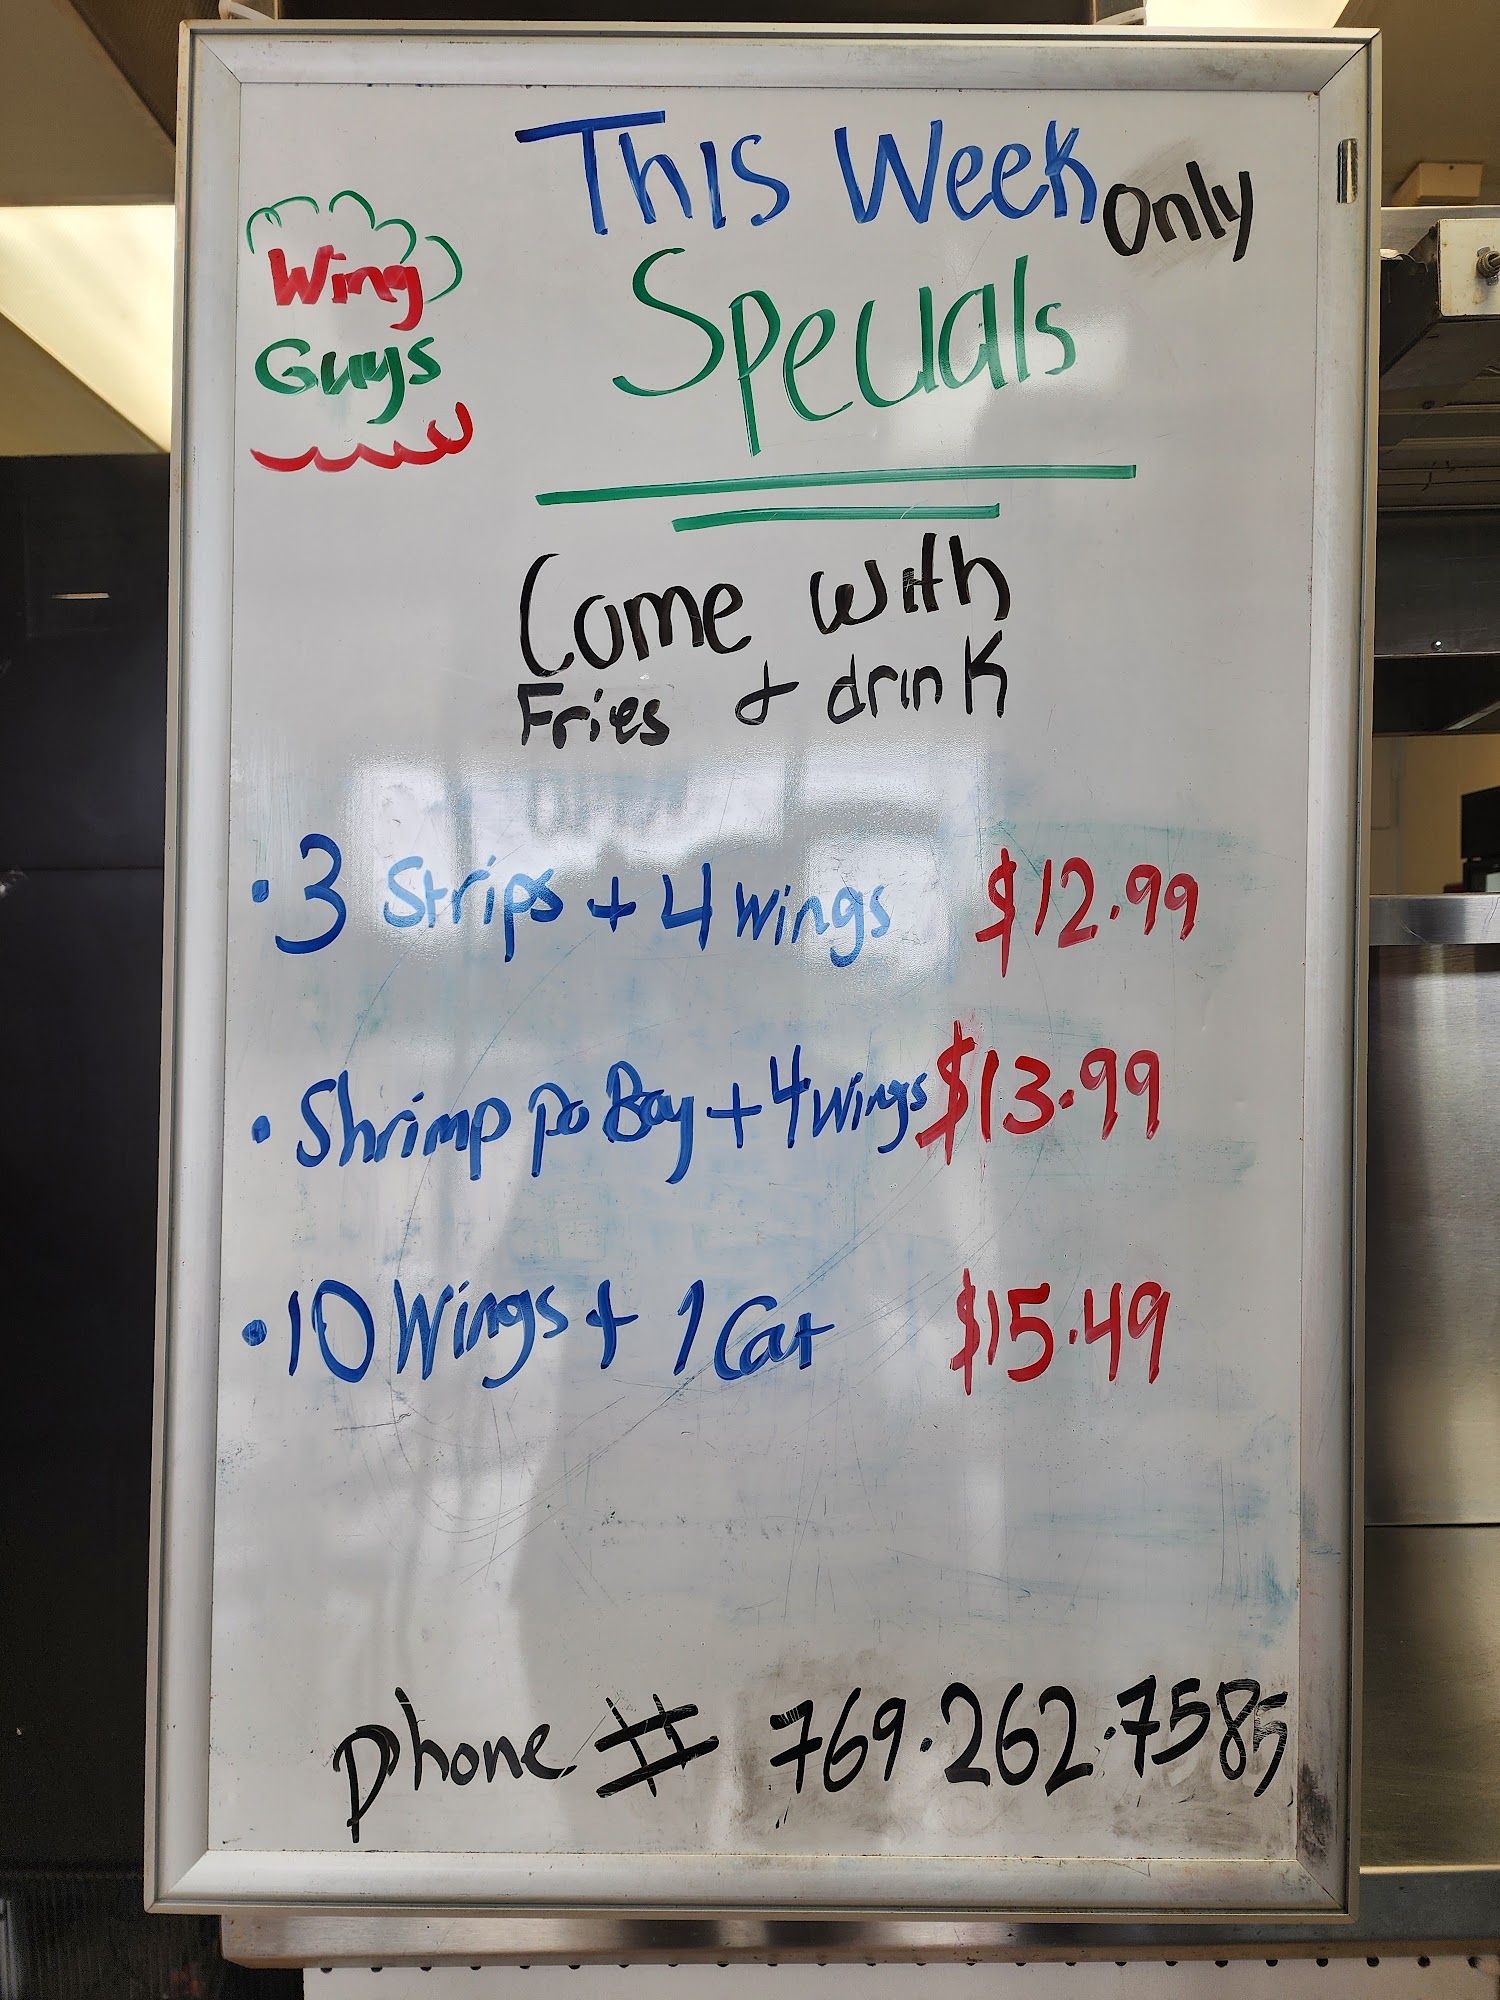 This Week Only
Wing
Guys
Specials
Come with
Fries & drink
• 3 Strips + 4 wings $12.99
• Shrimp po Boy + 4 wings $13.99
• 10 Wings + 1 Cat $15.49
phone # 769.262.7585